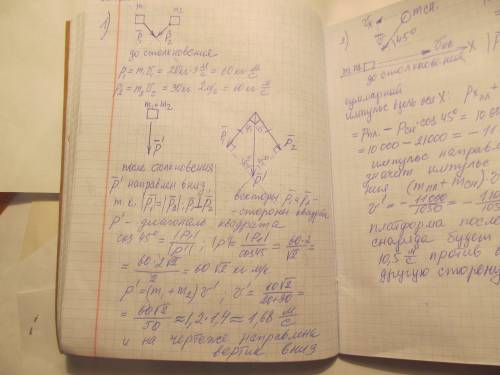 1)
m₁ m₂
p̄₁ p̄₂
до столкновения
p₁ = m₁v₁ = 20кг·3 м/с = 60 кг м/с
p₂ = m₂v₂ = 30кг 2м/с = 60 кг м/с
m₁+m₂
p̄'
после столкновения
p̄' направлен вниз
т.к. |p̄₁| = |p̄₂|; p̄₁⊥p̄₂
p̄₁ p̄₂
p̄'
векторы p̄₁ и p̄₂ -
- стороны квадрата
p' - диагональ квадрата
cos 45° = |p₁|/|p'|; |p'| = |p₁|/cos45° = 60·2/√2
= 60·2√2/2 = 60√2 кг м/с
p' = (m₁+m₂)v'; v' = 60√2/20+30 =
= 60√2/50 ≈ 1,2·1,4 ≈ 1,68 м/с
и на чертеже направлена
вертик вниз
45°
X
m₁
до столкновения
суммарный
импульс вдоль оси X:
cos 45° =
= 10000 - 21000 = -11
импульс направл
значит импульс
v' = - 11000/1050 =
платформа после
снаряда будет
10,5 м/с против
другую сторону